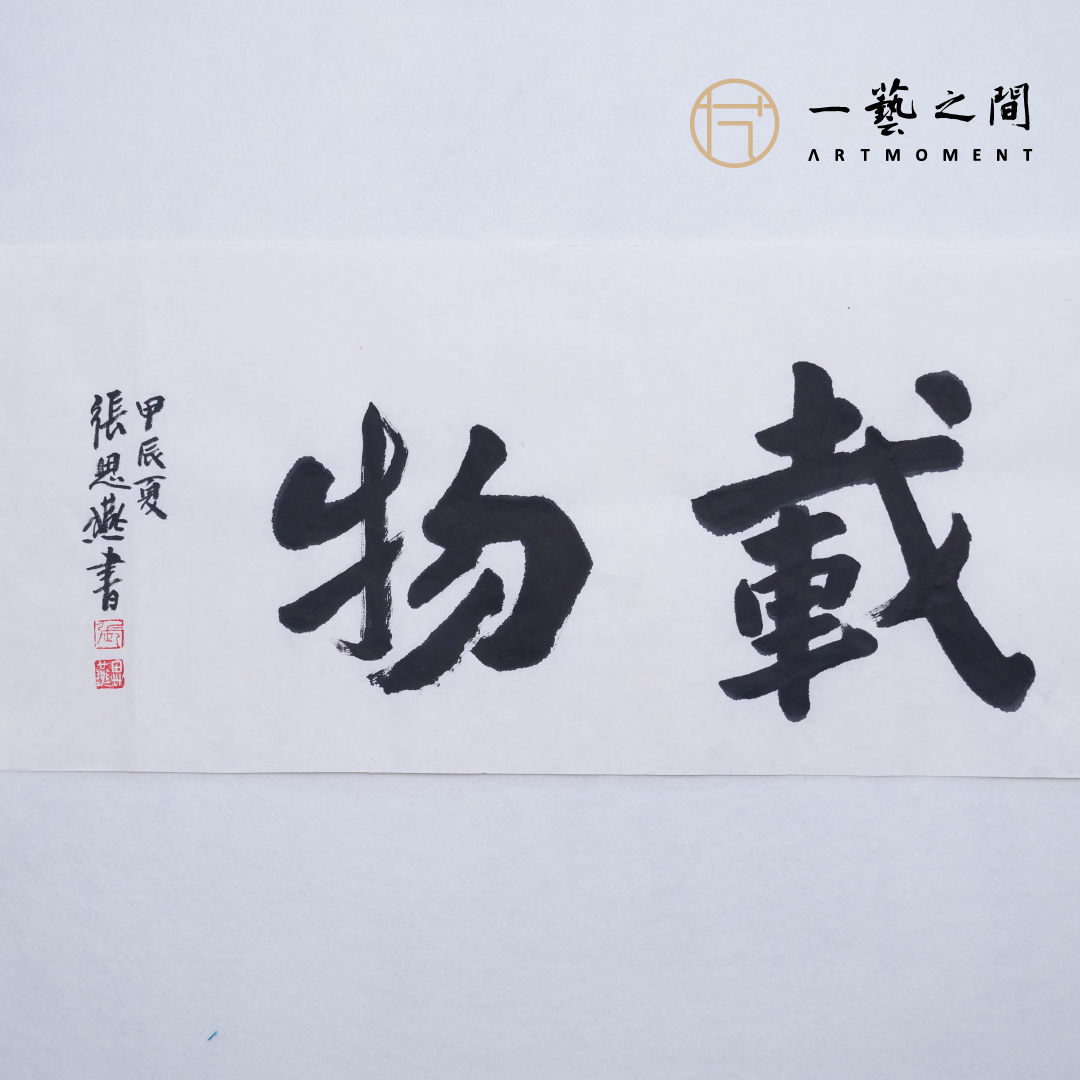 一藝之間
ARTMOMENT
載物
甲辰夏
張思燕書
張
思燕